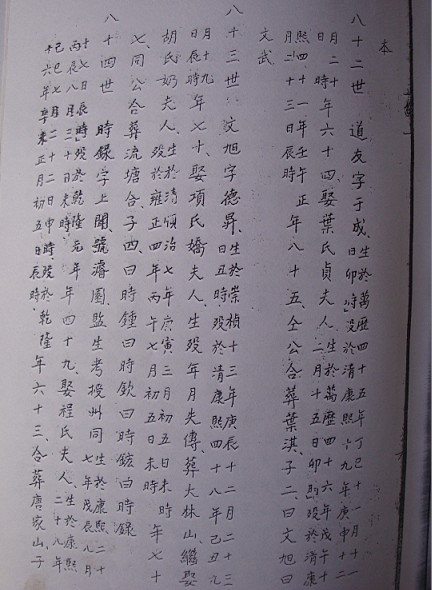 本
八十二世 道友字于成生於萬歷四十五年丁巳十一月十一日卯時歿於清康熙十九年庚申十二
月二十日時年六十四娶葉氏貞夫人生於萬歷四十六年戊午十二月十五日卯時歿於清康
熙四十一年壬午正月二十三日辰時年八十五仝公合葬葉淇子二曰文旭曰
文武
八十三世 汶旭字德昇生於崇禎十三年庚辰十二月二十三日丑時歿於清康熙四十八年己丑九
月十九日辰時年七十娶項氏嬌夫人生歿年月失傳葬大林山繼娶
胡氏奶夫人生於清順治七年庚寅三月初五日未時歿於雍正四年丙午七月初五日未時年七十
七同公合葬流塘合子四曰時鍾曰時欽曰時鋐曰時錄
八十四世 時錄字上開號濬園監生考授州同生於康熙二十七年戊辰八月
十七日辰時歿於乾隆元年丙辰八月三十日未時年四十九娶程氏夫人生於康熙二十八年
己巳七月二十二日申時歿於乾隆十六年辛未正月初五日辰時年六十三合葬唐家山子